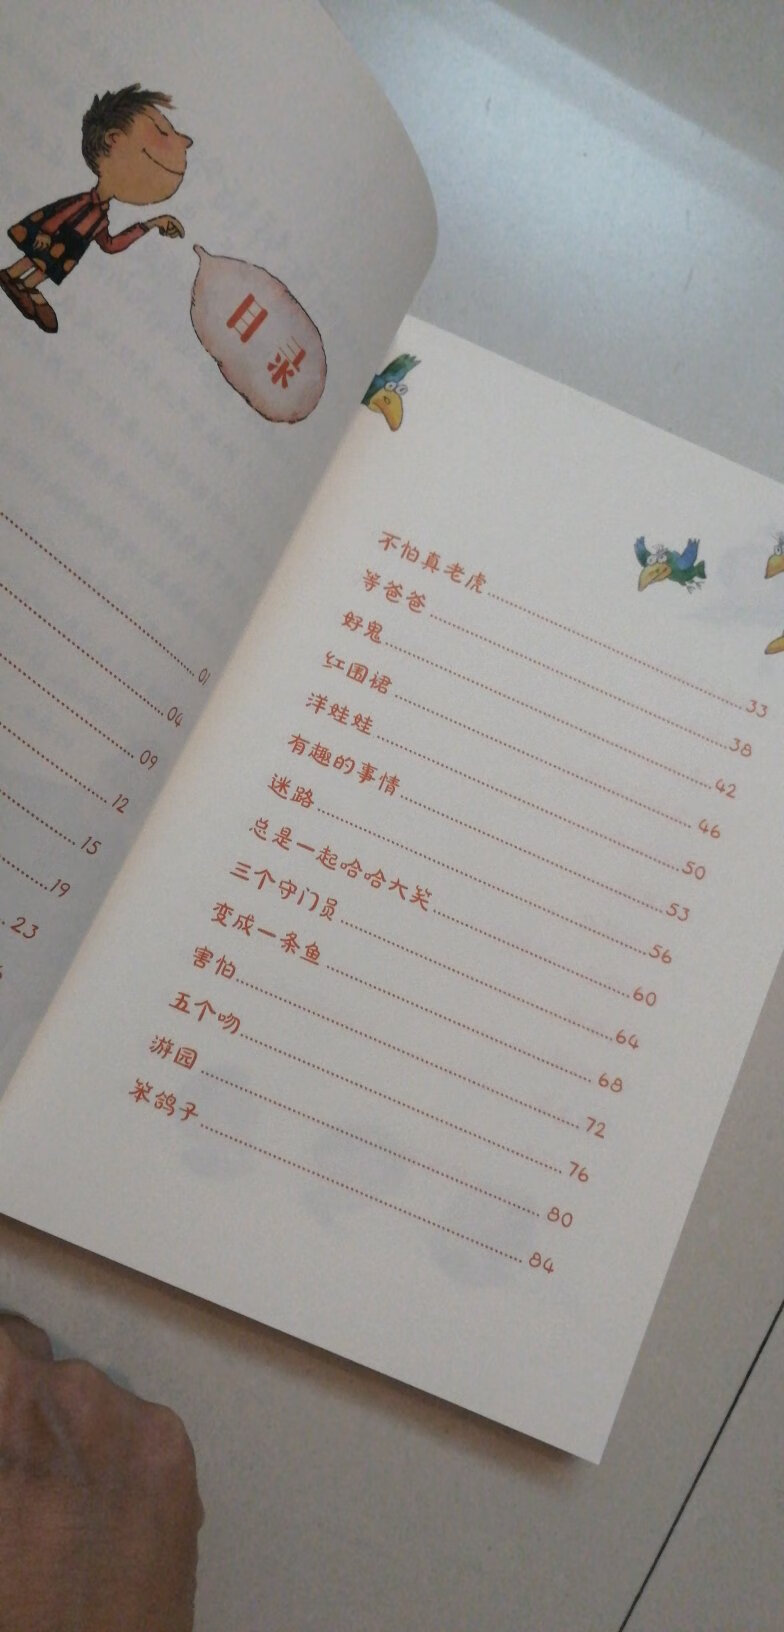 目录
01
04
09
12
15
19
23
不怕真老虎 33
等爸爸 38
好鬼 42
红围裙 46
洋娃娃 50
有趣的事情 53
迷路 56
总是一起哈哈大笑 60
三个守门员 64
变成一条鱼 68
害怕 72
五个吻 76
游园 80
笨鸽子 84